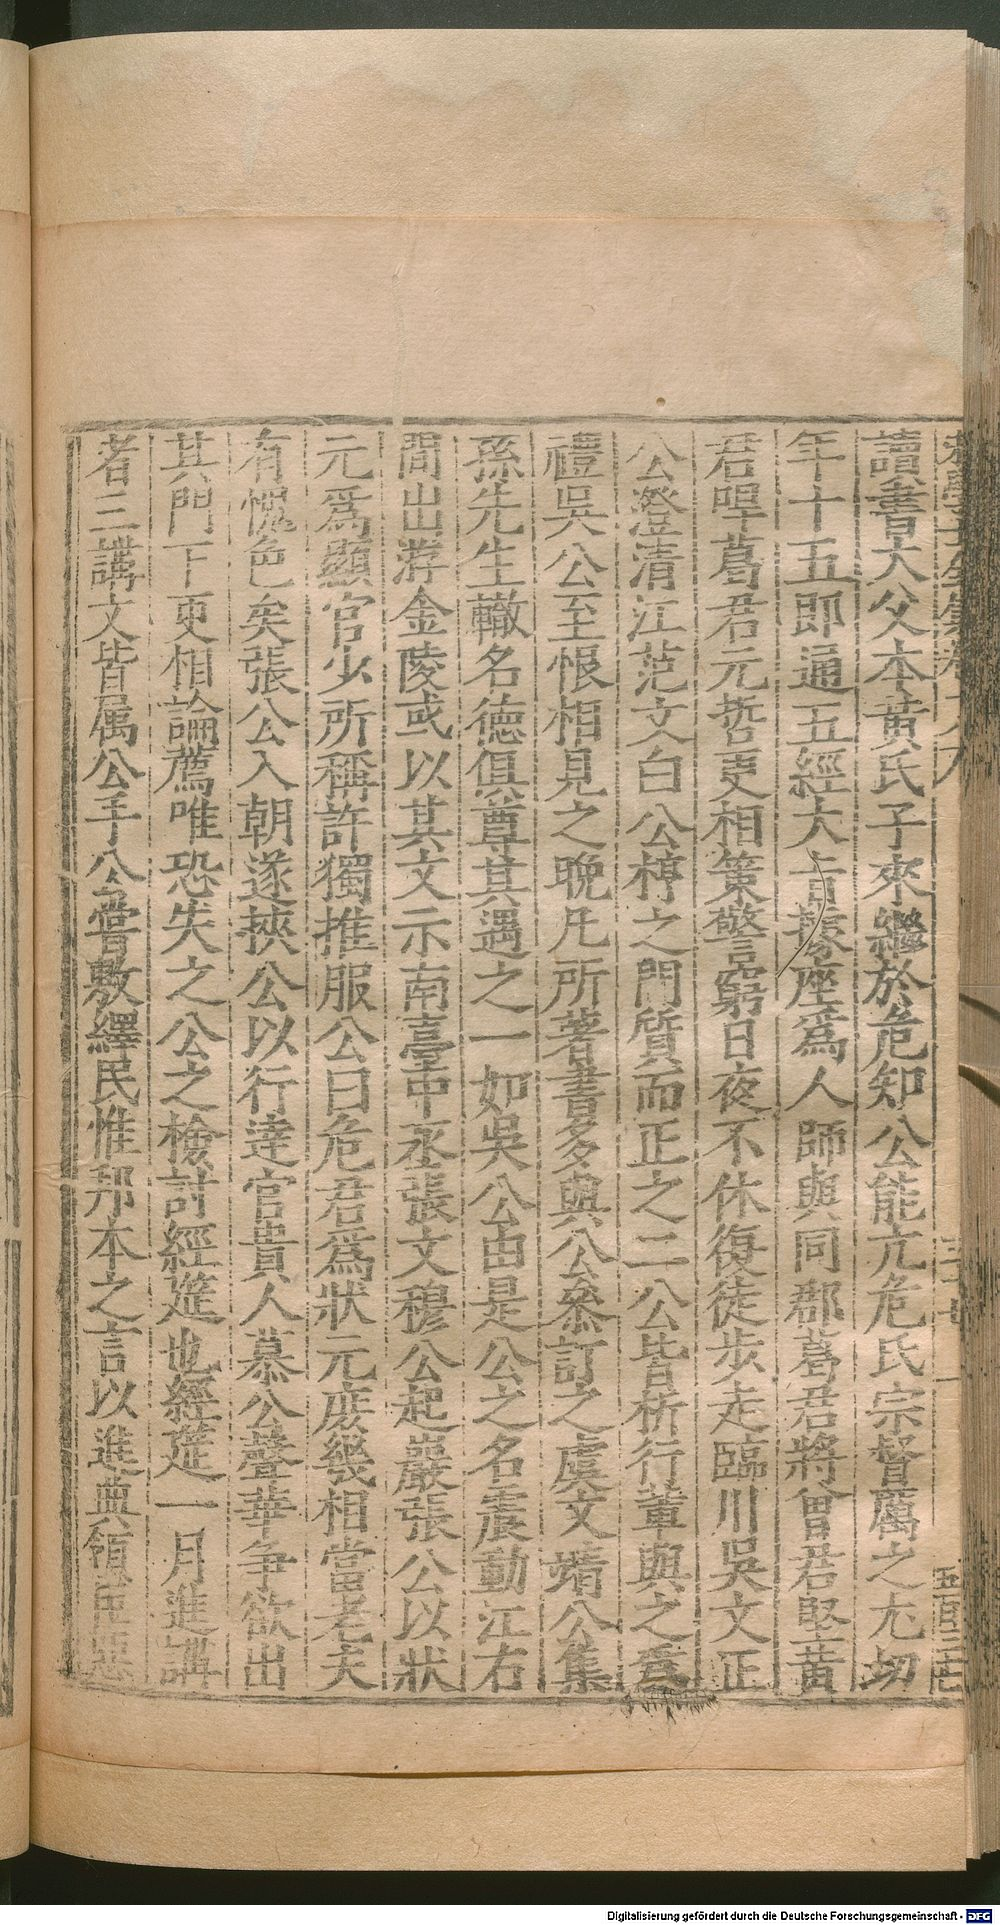 讀書大父本黃氏子來繼於危知公能亢危氏宗督厲之尢切
年十五即通五經大旨據座爲人師與同郡葛君將曾君堅黃
君㖊葛君元哲更相策警窮日夜不休復徒步走臨川吳文正
公澄清江范文白公梈之門質而正之二公皆析行輩與之爲
禮吳公至恨相見之晚凢所著書多與公叅訂之虞文靖公集
孫先生轍名德俱尊其遇之一如吳公由是公之名震動江右
間出游金陵或以其文示南臺中丞張文穆公起巖張公以狀
元爲顯官少所稱許獨推服公曰危君爲狀元庶幾相當老夫
有愧色矣張公入朝遂挾公以行達官貴人慕公聲華争欲出
其門下更相論薦唯恐失之公之檢討經筵也經筵一月進講
者三講文皆属公手公嘗敷繹民惟邦本之言以進典領臣惡
Digitalisierung gefördert durch die Deutsche Forschungsgemeinschaft - DFG